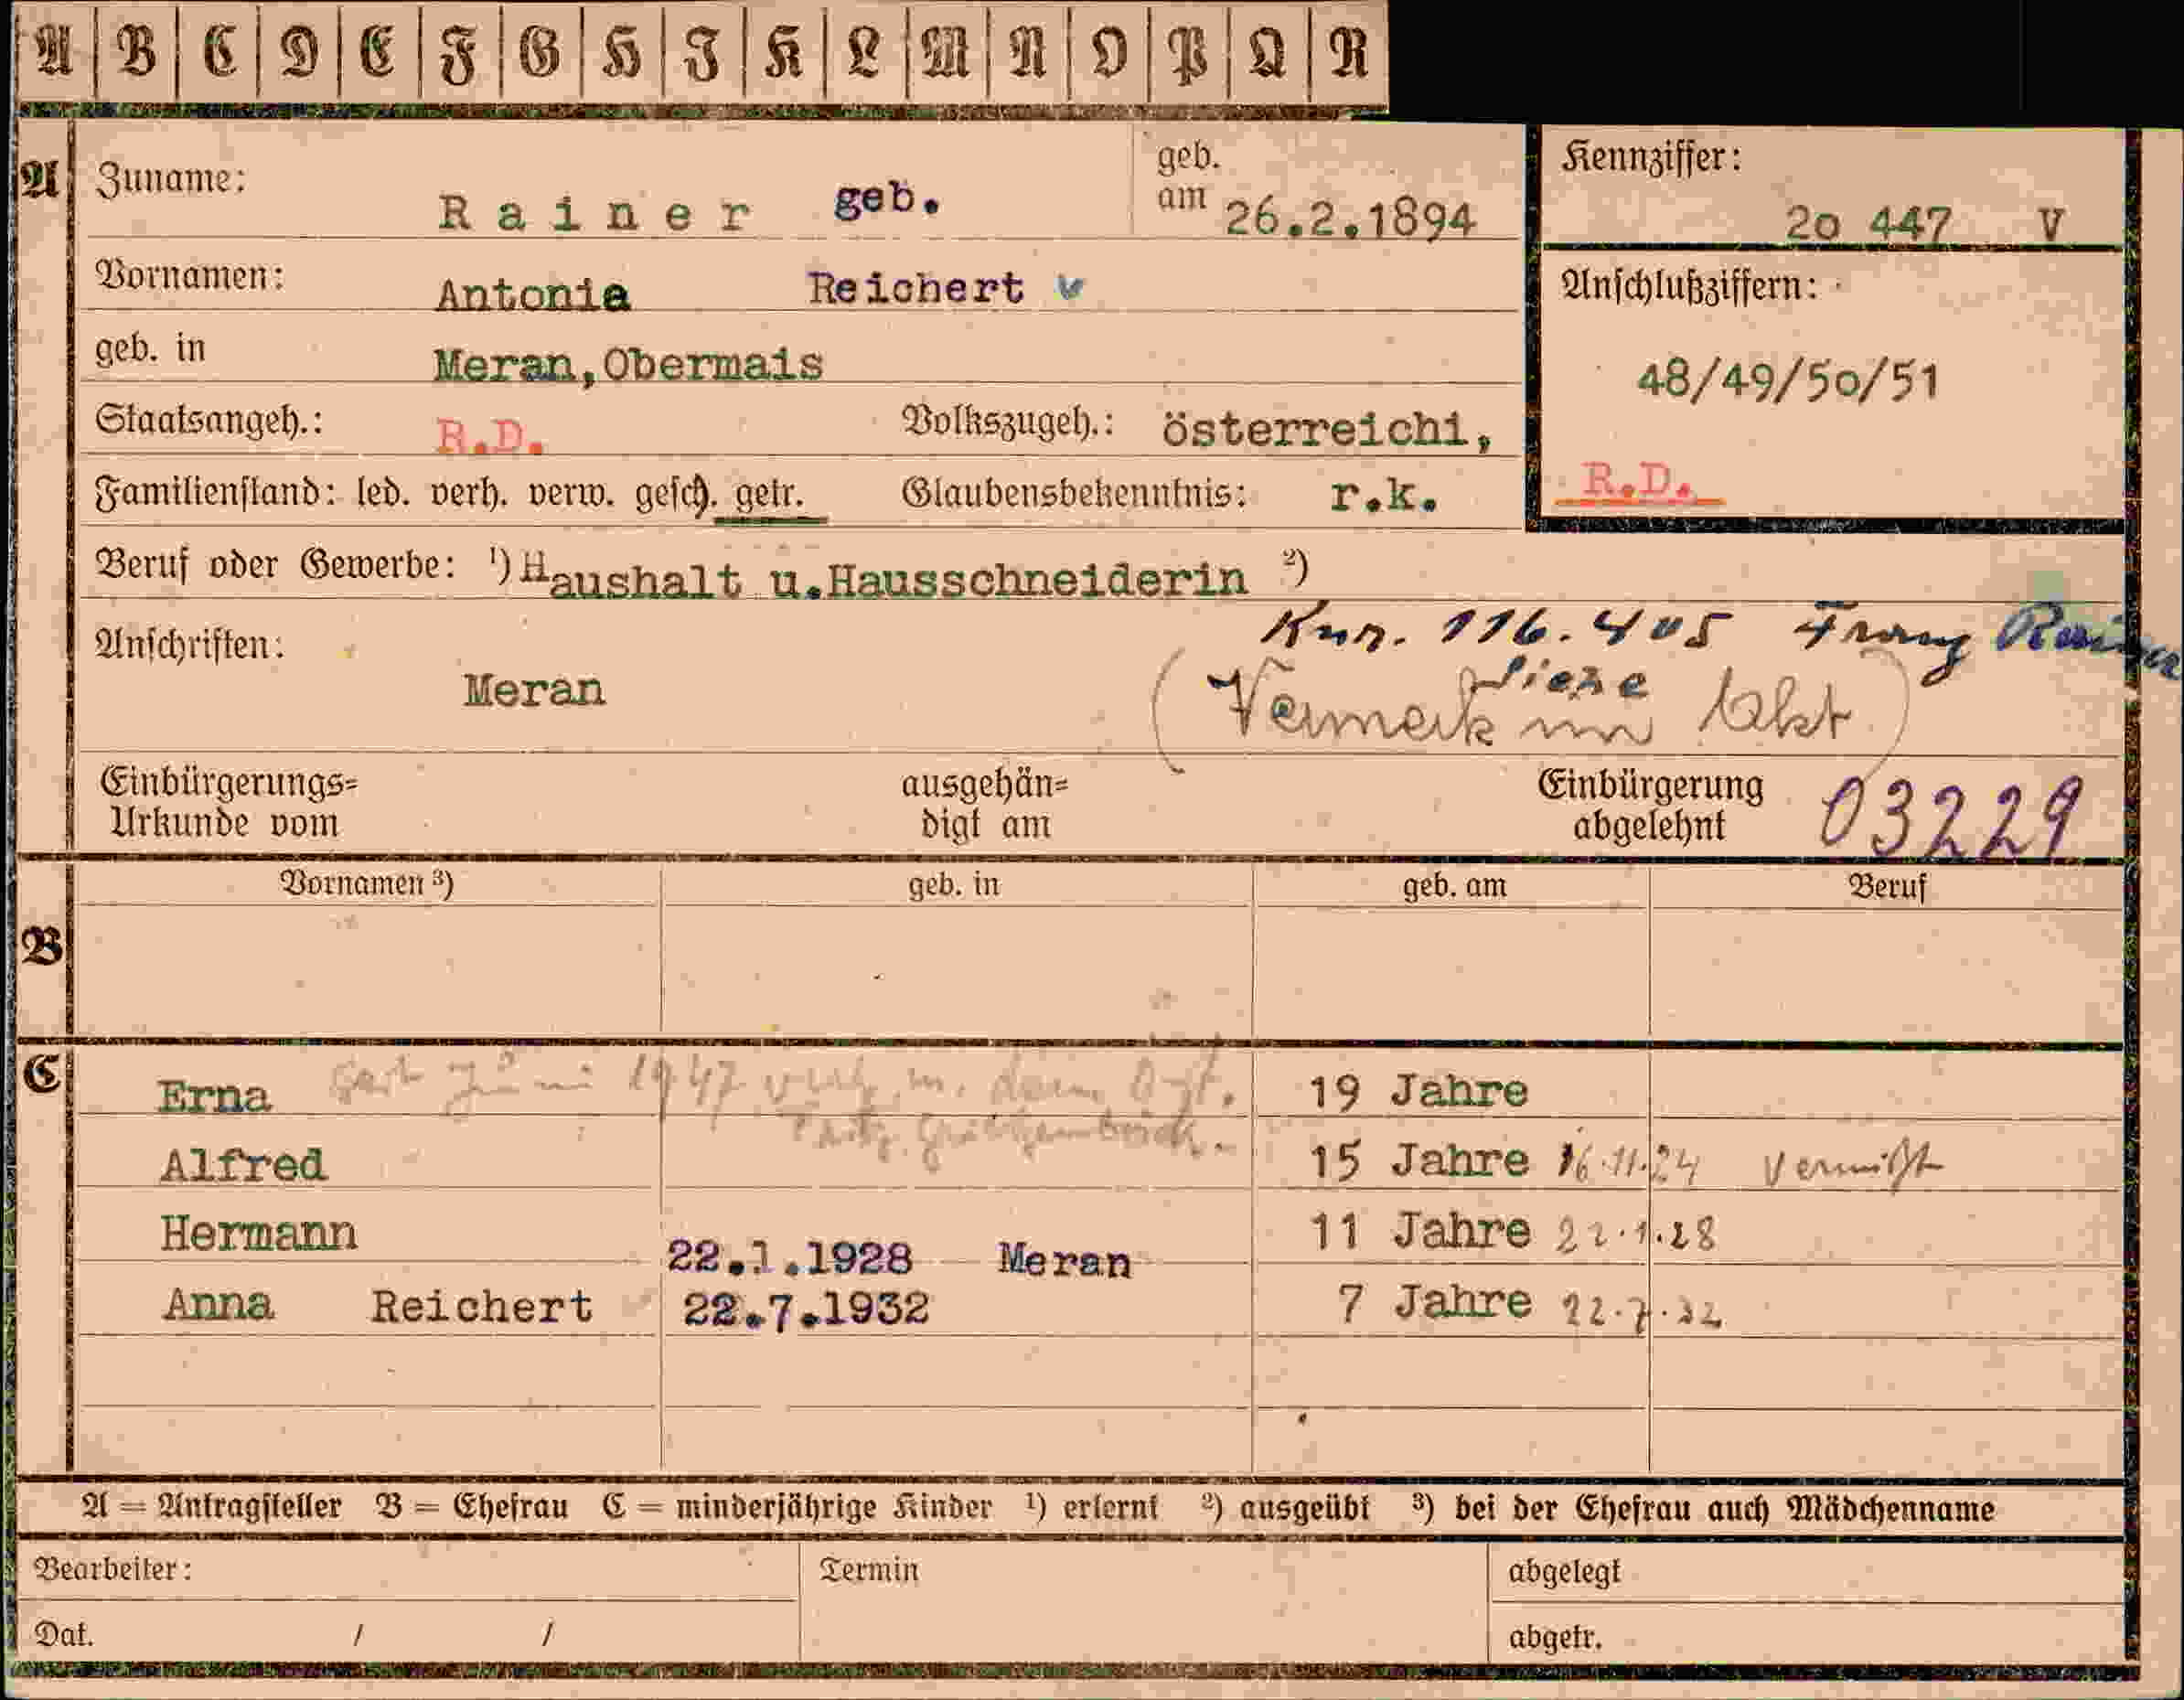 A B C D E F G H I K L M N O P Q R
A Zuname: Rainer geb. geb. am 26.2.1894
Kennziffer: 20 447 V
Vornamen: Antonia Reichert v
Anschlußziffern:
48/49/50/51
geb. in Meran,Obermais
Staatsangeh.: R.D. Volkszugeh.: österreichi,
R.D.
Familienstand: led. verh. verw. gesch. getr. Glaubensbekenntnis: r.k.
Beruf oder Gewerbe: ¹) Haushalt u.Hausschneiderin ²)
Knr. 116.405 Franz Rainer
Anschriften: Meran
siehe
(Vermerk im Akt)
Einbürgerungs= Urkunde vom ausgehän= digt am Einbürgerung abgelehnt 03229
Vornamen ³) geb. in geb. am Beruf
B
C Erna 1947 m. 19 Jahre
Alfred 15 Jahre 16.11.24 vermißt
Hermann 22.1.1928 Meran 11 Jahre 22.1.28
Anna Reichert 22.7.1932 7 Jahre 22.7.32
A = Antragsteller B = Ehefrau C = minderjährige Kinder ¹) erlernt ²) ausgeübt ³) bei der Ehefrau auch Mädchenname
Bearbeiter: Termin abgelegt
Dat. / / abgetr.